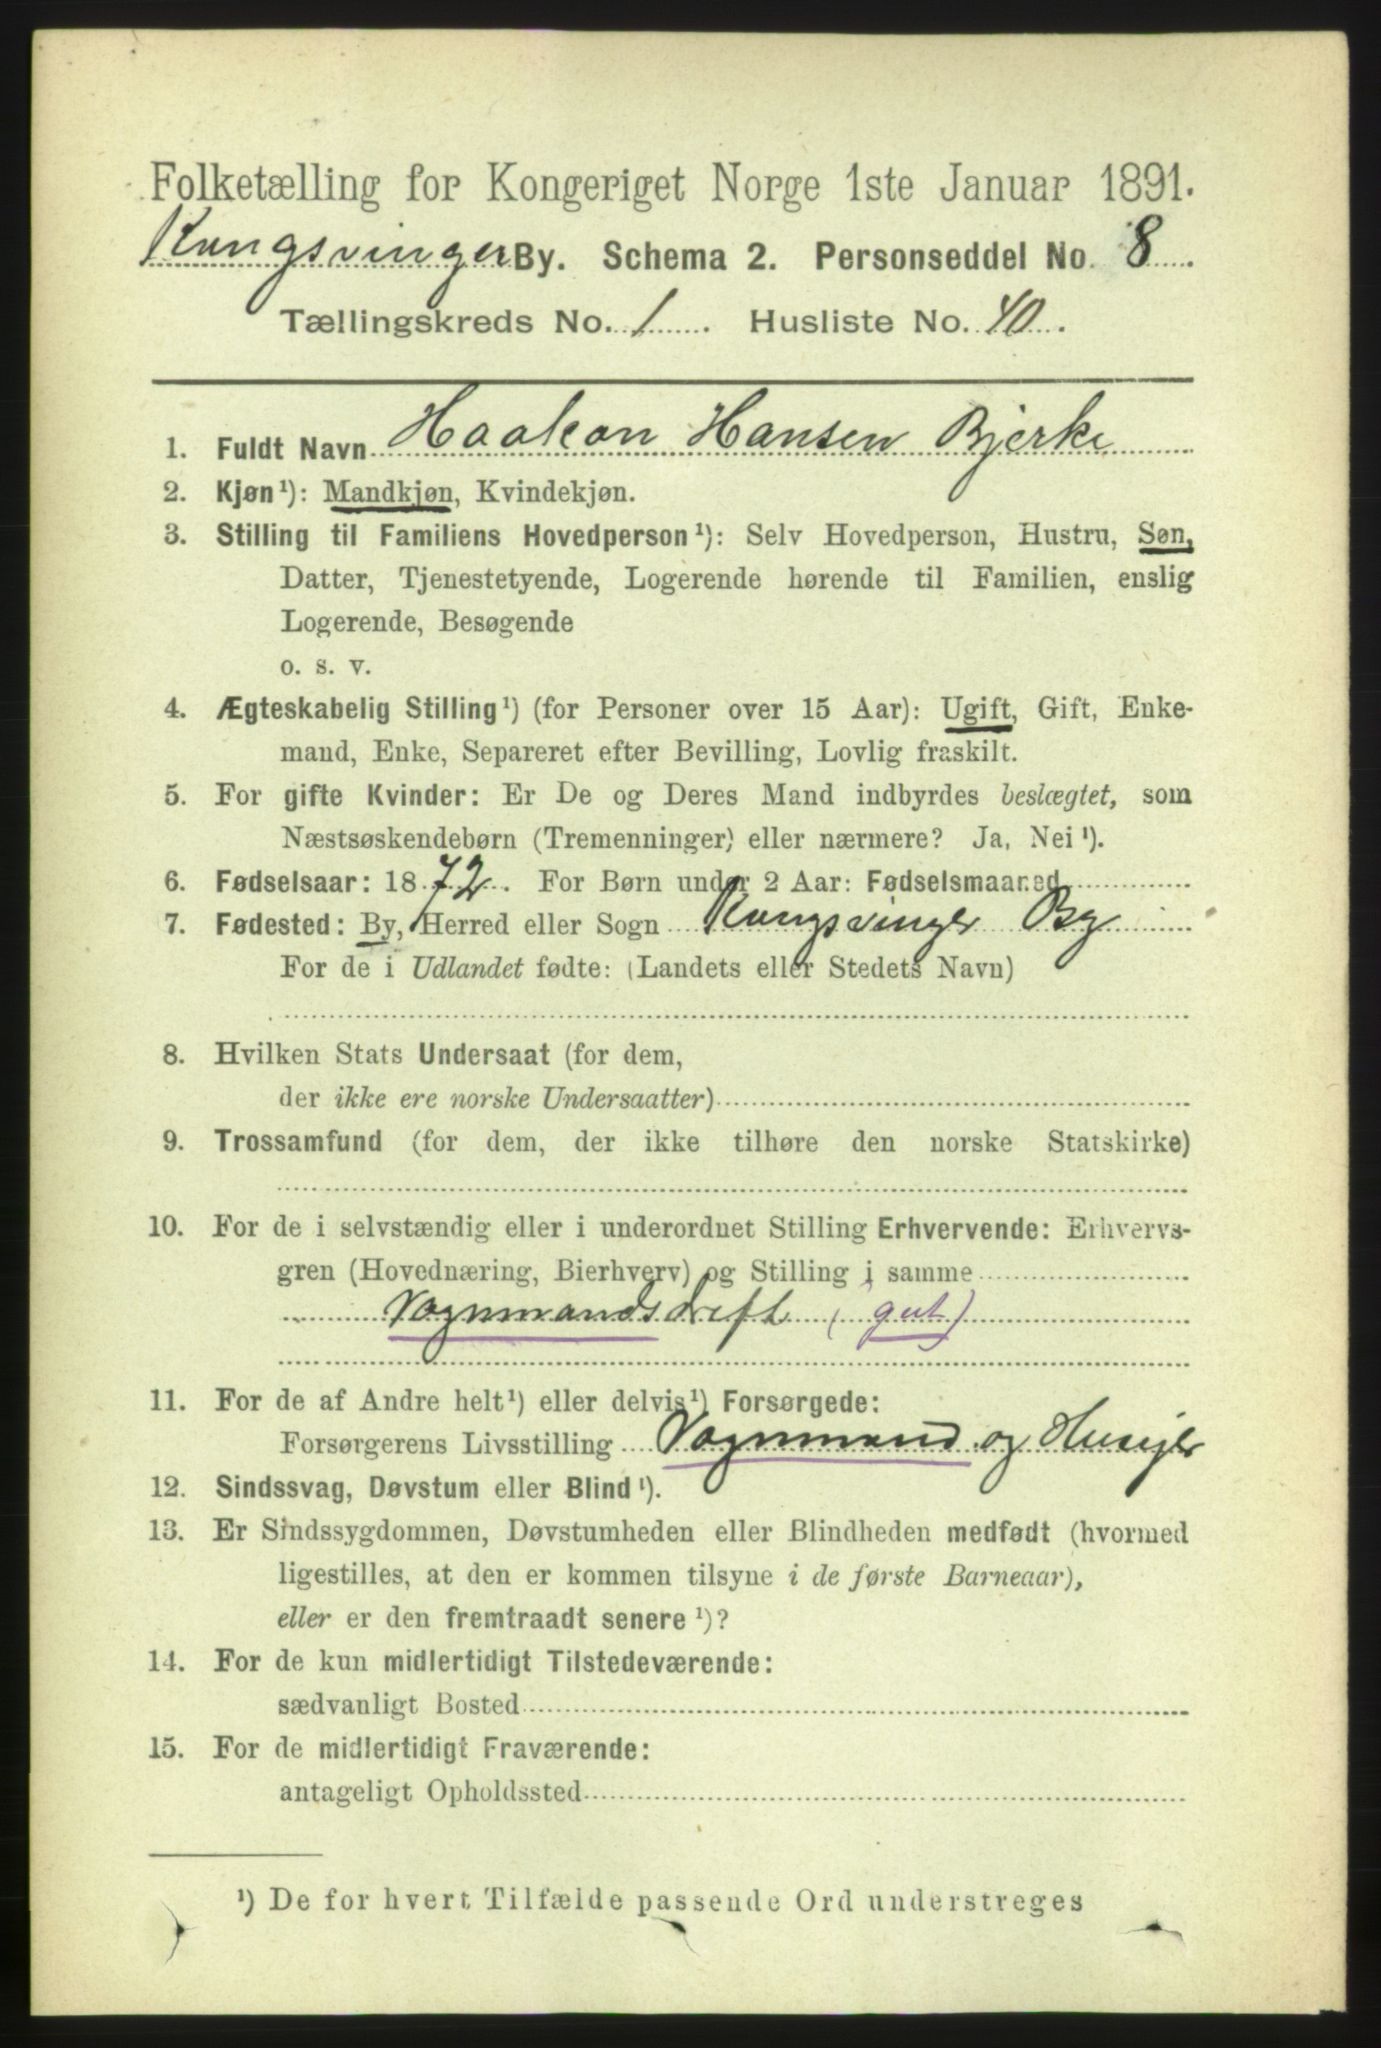 Folketælling for Kongeriget Norge 1ste Januar 1891.
Kongsvinger By. Schema 2. Personseddel No. 8.
Tællingskreds No. 1. Husliste No. 40.
1. Fuldt Navn Haakon Hansen Bjerke
2. Kjøn¹): Mandkjøn, Kvindekjøn.
3. Stilling til Familiens Hovedperson¹): Selv Hovedperson, Hustru, Søn,
Datter, Tjenestetyende, Logerende hørende til Familien, enslig
Logerende, Besøgende
o. s. v.
4. Ægteskabelig Stilling¹) (for Personer over 15 Aar): Ugift, Gift, Enke-
mand, Enke, Separeret efter Bevilling, Lovlig fraskilt.
5. For gifte Kvinder: Er De og Deres Mand indbyrdes beslægtet, som
Næstsøskendebørn (Tremenninger) eller nærmere? Ja, Nei¹).
6. Fødselsaar: 1872. For Børn under 2 Aar: Fødselsmaaned
7. Fødested: By, Herred eller Sogn Kongsvinger By
For de i Udlandet fødte: (Landets eller Stedets Navn)
8. Hvilken Stats Undersaat (for dem,
der ikke ere norske Undersaatter)
9. Trossamfund (for dem, der ikke tilhøre den norske Statskirke)
10. For de i selvstændig eller i underordnet Stilling Erhvervende: Erhvervs-
gren (Hovednæring, Bierhverv) og Stilling i samme
Vognmandsdrift (gut)
11. For de af Andre helt¹) eller delvis¹) Forsørgede:
Forsørgerens Livsstilling Vognmand og Husejer
12. Sindssvag, Døvstum eller Blind¹).
13. Er Sindssygdommen, Døvstumheden eller Blindheden medfødt (hvormed
ligestilles, at den er kommen tilsyne i de første Barneaar),
eller er den fremtraadt senere¹)?
14. For de kun midlertidigt Tilstedeværende:
sædvanligt Bosted
15. For de midlertidigt Fraværende:
antageligt Opholdssted
¹) De for hvert Tilfælde passende Ord understreges